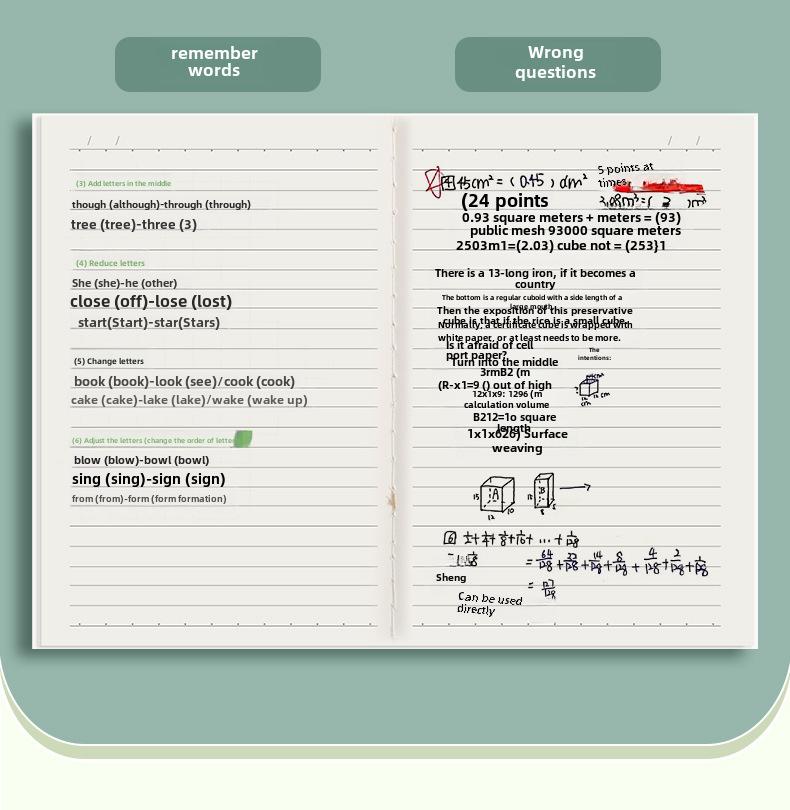 remember
words
Wrong
questions
/ /
(3) Add letters in the middle
though (although)-through (through)
tree (tree)-three (3)
(4) Reduce letters
She (she)-he (other)
close (off)-lose (lost)
start(Start)-star(Stars)
(5) Change letters
book (book)-look (see)/cook (cook)
cake (cake)-lake (lake)/wake (wake up)
(6) Adjust the letters (change the order of letter
blow (blow)-bowl (bowl)
sing (sing)-sign (sign)
from (from)-form (form formation)
/ /
45cm² = ( 0.45 ) dm²
5 points at
times,
(24 points
0.93 square meters + meters = (93)
public mesh 93000 square meters
2503m1=(2.03) cube not = (253}1
There is a 13-long iron, if it becomes a
country
The bottom is a regular cuboid with a side length of a
large mouth
Then the exposition of this preservative
cube is that if the rice is a small cube
Normally, a certificate cube is wrapped with
white paper, or at least needs to be more.
Is it afraid of cell
port paper?
The
intentions:
Turn into the middle
3rmB2 (m
(R-x1=9 () out of high
12x1x9: 1296 (m
calculation volume
B212=1o square
length
1x1x626) Surface
weaving
15 A 12 10
B 8
⑥ 1/2+1/4+1/8+1/16+ ... + 1/128
= 64/128 + 32/128 + 14/128 + 8/128 + 4/128 + 2/128 + 1/128
= 127/128
Sheng
Can be used
directly